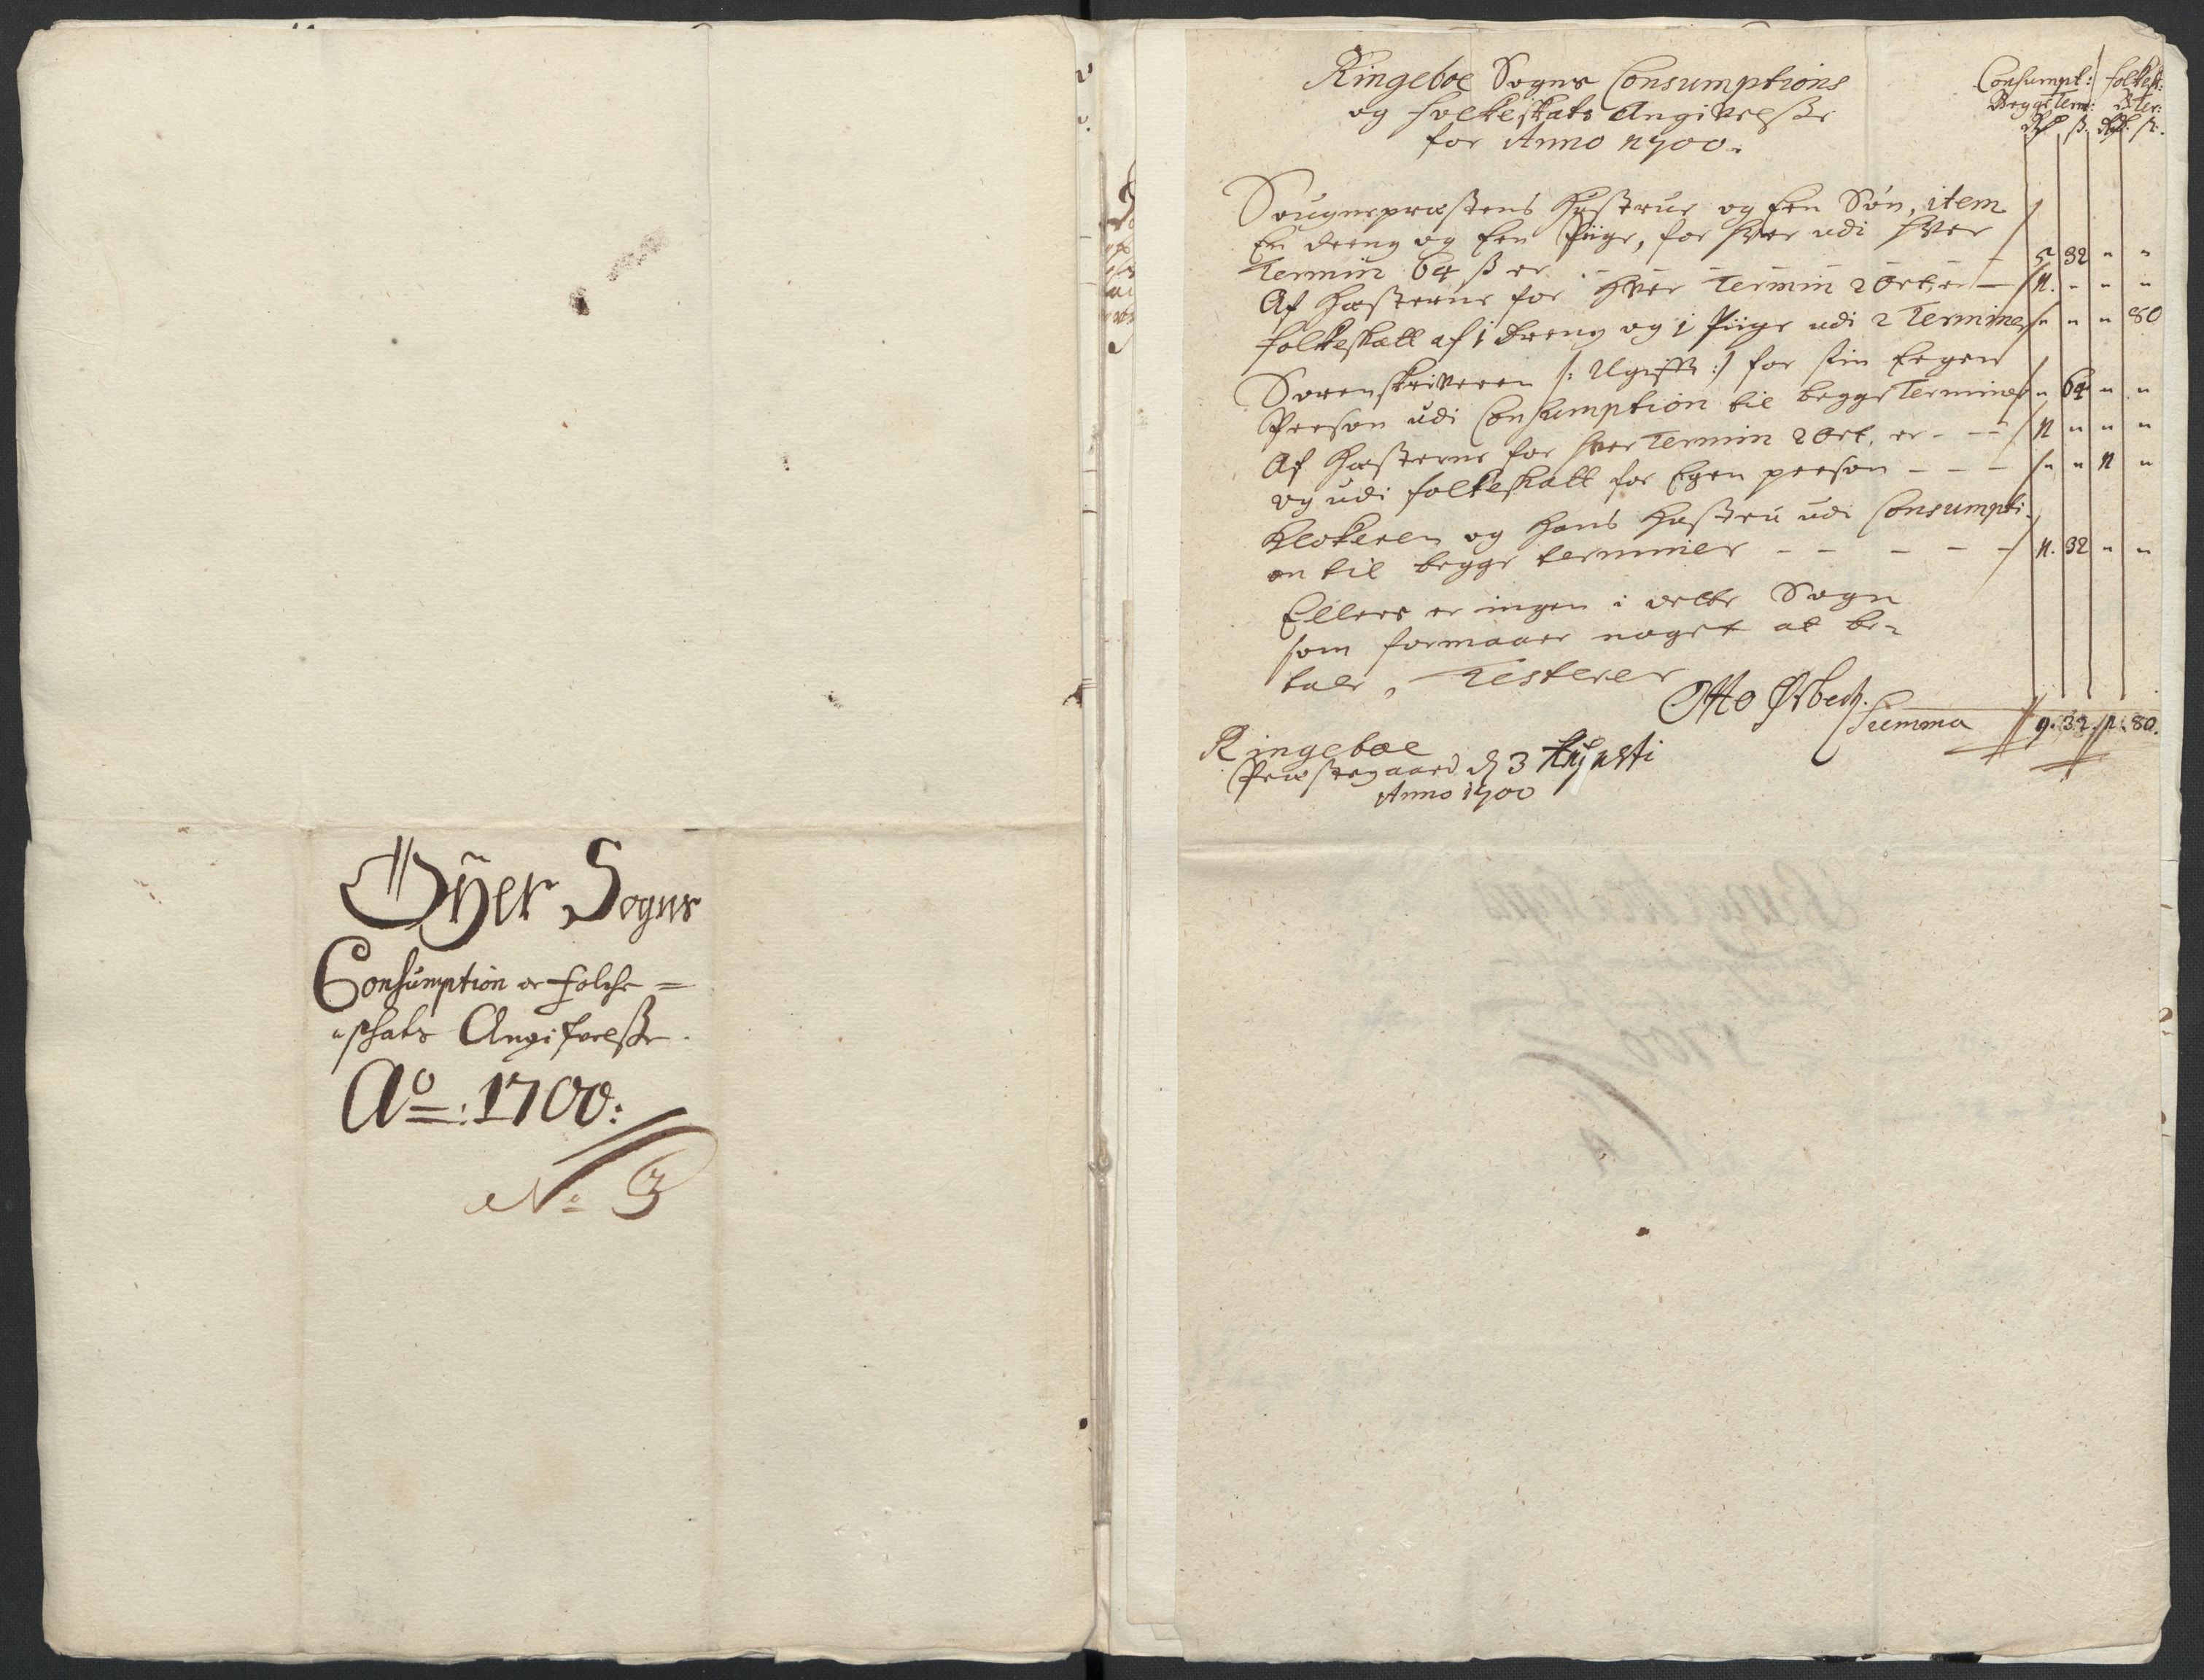 Öÿer Sogns
Consumption oc folche =
"schatz Angifvelsse.
Ao: 1700:
No 3
Ringeboe Sogns Consumptions
og folkeskats Angivelsse
for Anno 1700.
Consumpt: folkesk:
Begge Term: B Ter:
Rd ß. Rd. ß.
Sougneprestens Hustrue og Een Søn, item
En dreng og Een Piige, for hver udi hver
Termin 64 ß er - - - - - 5 32 " "
Af Hæsterne for hver Termin 2 Ort, er - 1. - " "
folkeskatt af 1 dreng og 1 Piige udi 2 Terminer " " " 80
Sorenskriveren /: Ugifft :/ for sin Eegen
Person udi Consumption til begge Terminer " 64 " "
Af Hæsterne for hver Termin 2 Ort. er - - - 1 " " "
og udi folkeskatt for Egen person - - - " " 1 "
Klokeren og Hans Hustru udi Consumpti-
on til begge terminer - - - - - 1. 32 " "
Ellers er ingen i dette Sogn
som formaaer noget at be-
tale, Testerer
Otto Ørbech.
Summa 9. 32. 1. 80.
Ringeboe
Præstegaard d 3 Augusti
Anno 1700